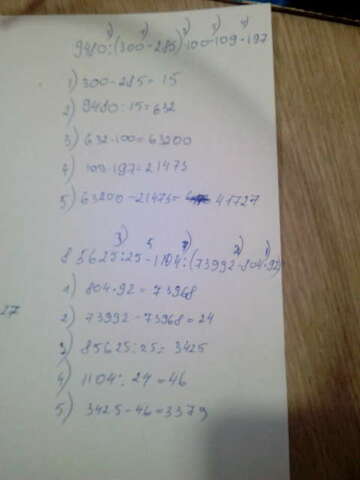 9480:(300-285)·100-109·197
1) 300-285=15
2) 9480:15=632
3) 632·100=63200
4) 109·197=21473
5) 63200-21473= 41727
3) 5 4) 2) 1)
85625:25-1104:(73992-804·92)
1) 804·92=73968
2) 73992-73968=24
3) 85625:25=3425
4) 1104:24=46
5) 3425-46=3379
27